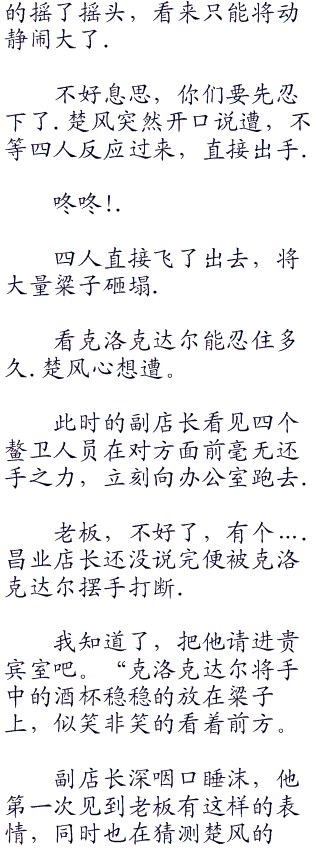 的摇了摇头，看来只能将动
静闹大了.
不好息思，你们要先忍
下了.楚风突然开口说遭，不
等四人反应过来，直接出手.
咚咚!.
四人直接飞了出去，将
大量梁子砸塌.
看克洛克达尔能忍住多
久.楚风心想遭。
此时的副店长看见四个
鳌卫人员在对方面前毫无还
手之力，立刻向办公室跑去.
老板，不好了，有个….
昌业店长还没说完便被克洛
克达尔摆手打断.
我知道了，把他请进贵
宾室吧。“克洛克达尔将手
中的酒杯稳稳的放在梁子
上，似笑非笑的看着前方。
副店长深咽口睡沫，他
第一次见到老板有这样的表
情，同时也在猜测楚风的